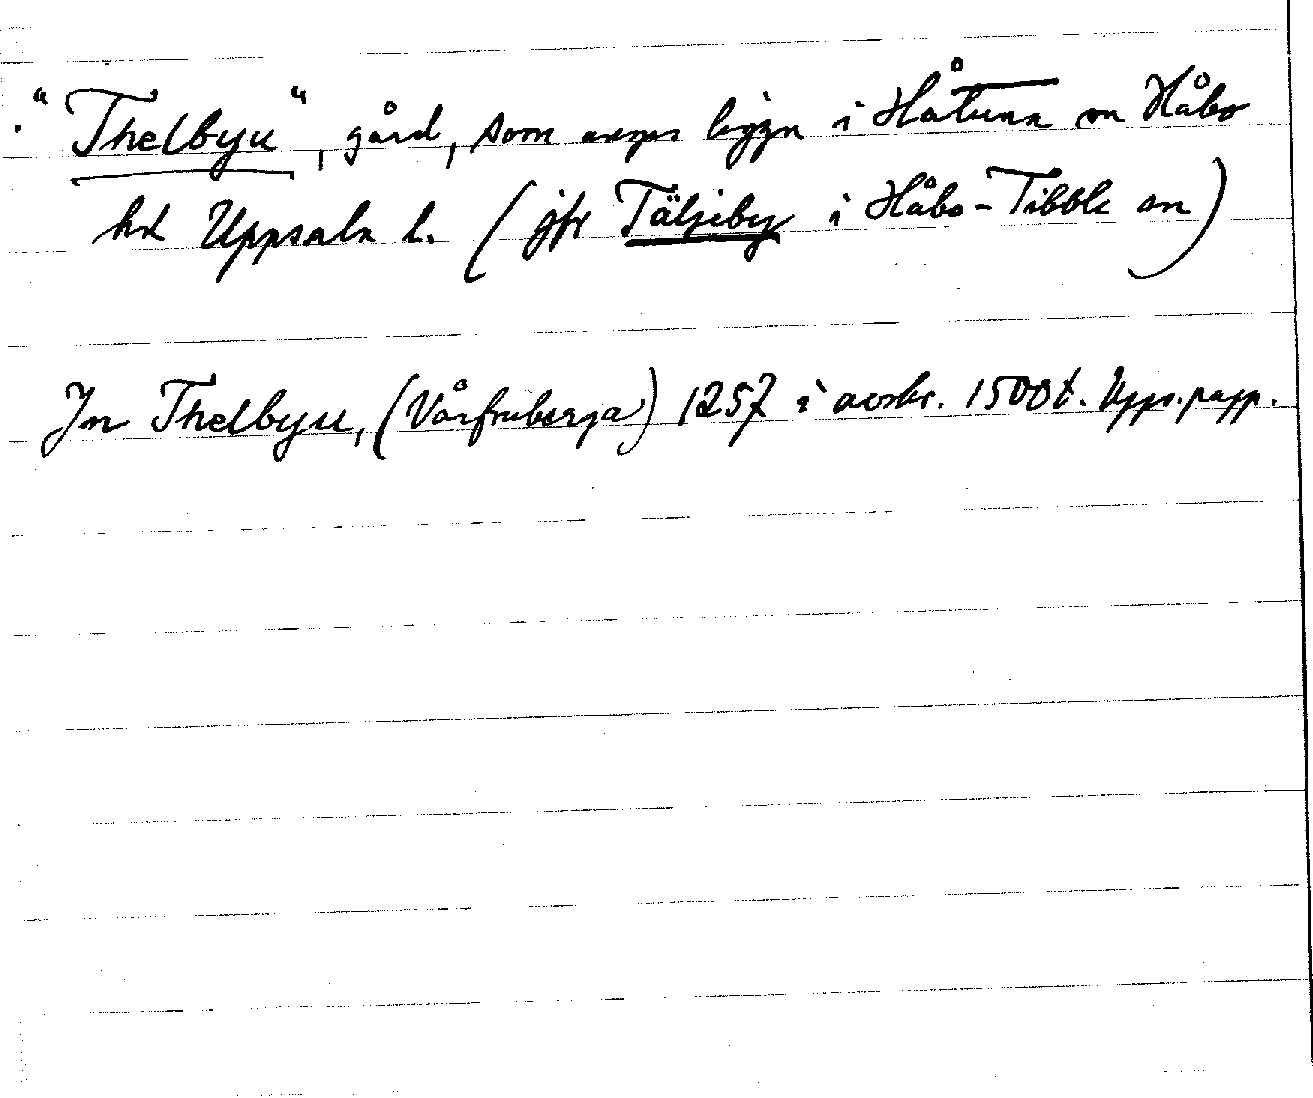 "Thelbyu", gård, som anges ligga i Håtuna sn Håbo
hd Uppsala l. (jfr Täljeby i Håbo-Tibble sn)
In Thelbyu, (Vårfruberga) 1257 i avskr. 1500t. Upps.papp.